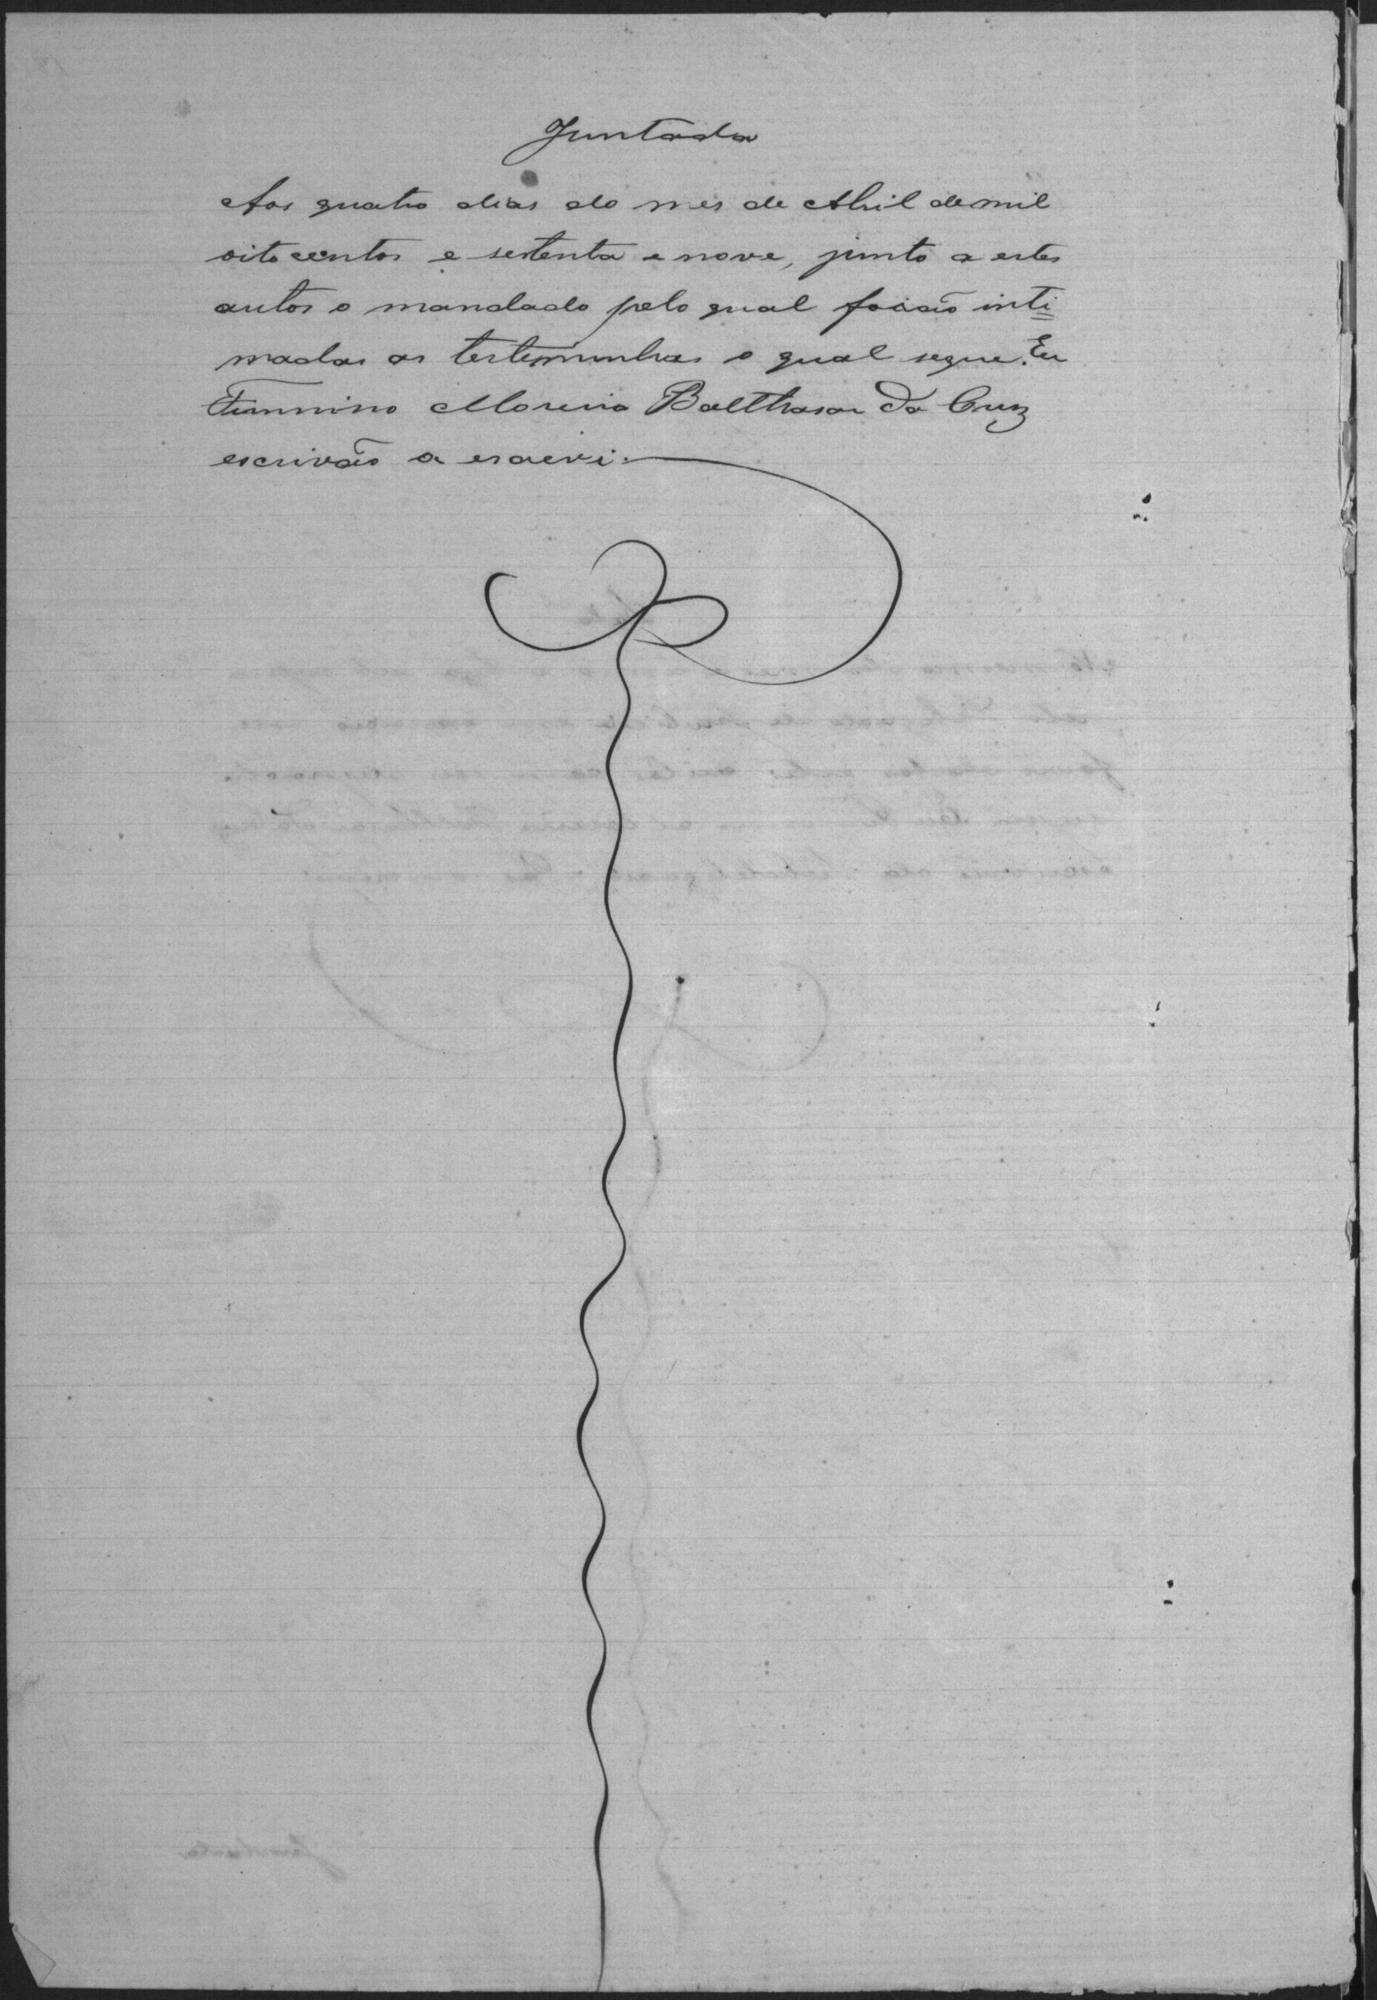 Juntada
Aos quatro dias do mes de Abril de mil
oito centos e setenta e nove, junto a estes
autos o mandado pelo qual forão inti=
madas as testemunhas o qual segue. Eu
Firmino Moreira Balthasar da Cruz
escrivão a escrevi.